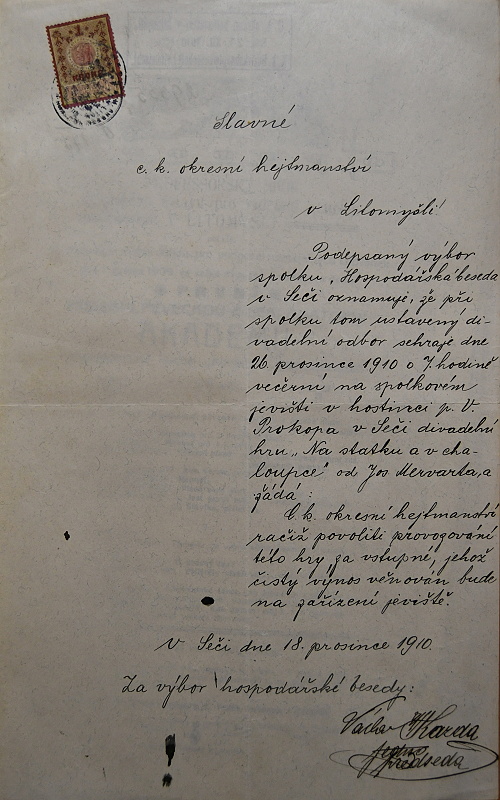 Slavné
c. k. okresní hejtmanství
v Litomyšli!
Podepsaný výbor
spolku „Hospodářská beseda
v Seči oznamuje, že při
spolku tom ustavený di-
vadelní odbor sehraje dne
26. prosince 1910 o 7. hodině
večerní na spolkovém
jevišti v hostinci p. V.
Prokopa v Seči divadelní
hru „Na statku a v cha-
loupce" od Jos Mervarta, a
žádá:
C. k. okresní hejtmanství
račiž povoliti provozování
této hry za vstupné, jehož
čistý výnos věnován bude
na zařízení jeviště.
V Seči dne 18. prosince 1910.
Za výbor hospodářské besedy:
Václav
předseda